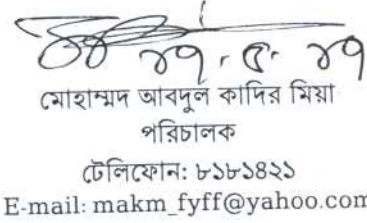 ২৭.৫.২৭
মোহাম্মদ আবদুল কাদির মিয়া
পরিচালক
টেলিফোন: ৮১৮১৪২১
E-mail: makm_fyff@yahoo.com